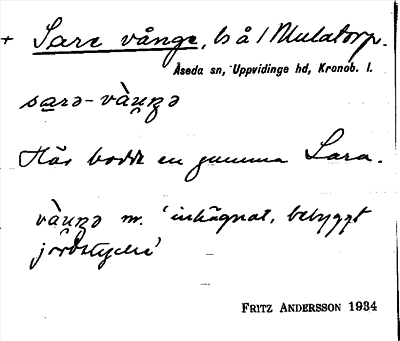 + Sare vånge, bå / Mulatorp.
Åseda sn, Uppvidinge hd, Kronob. l.
Här bodde en gumma Sara.
m. 'inhägnat, bebyggt
jordstycke'
FRITZ ANDERSSON 1934